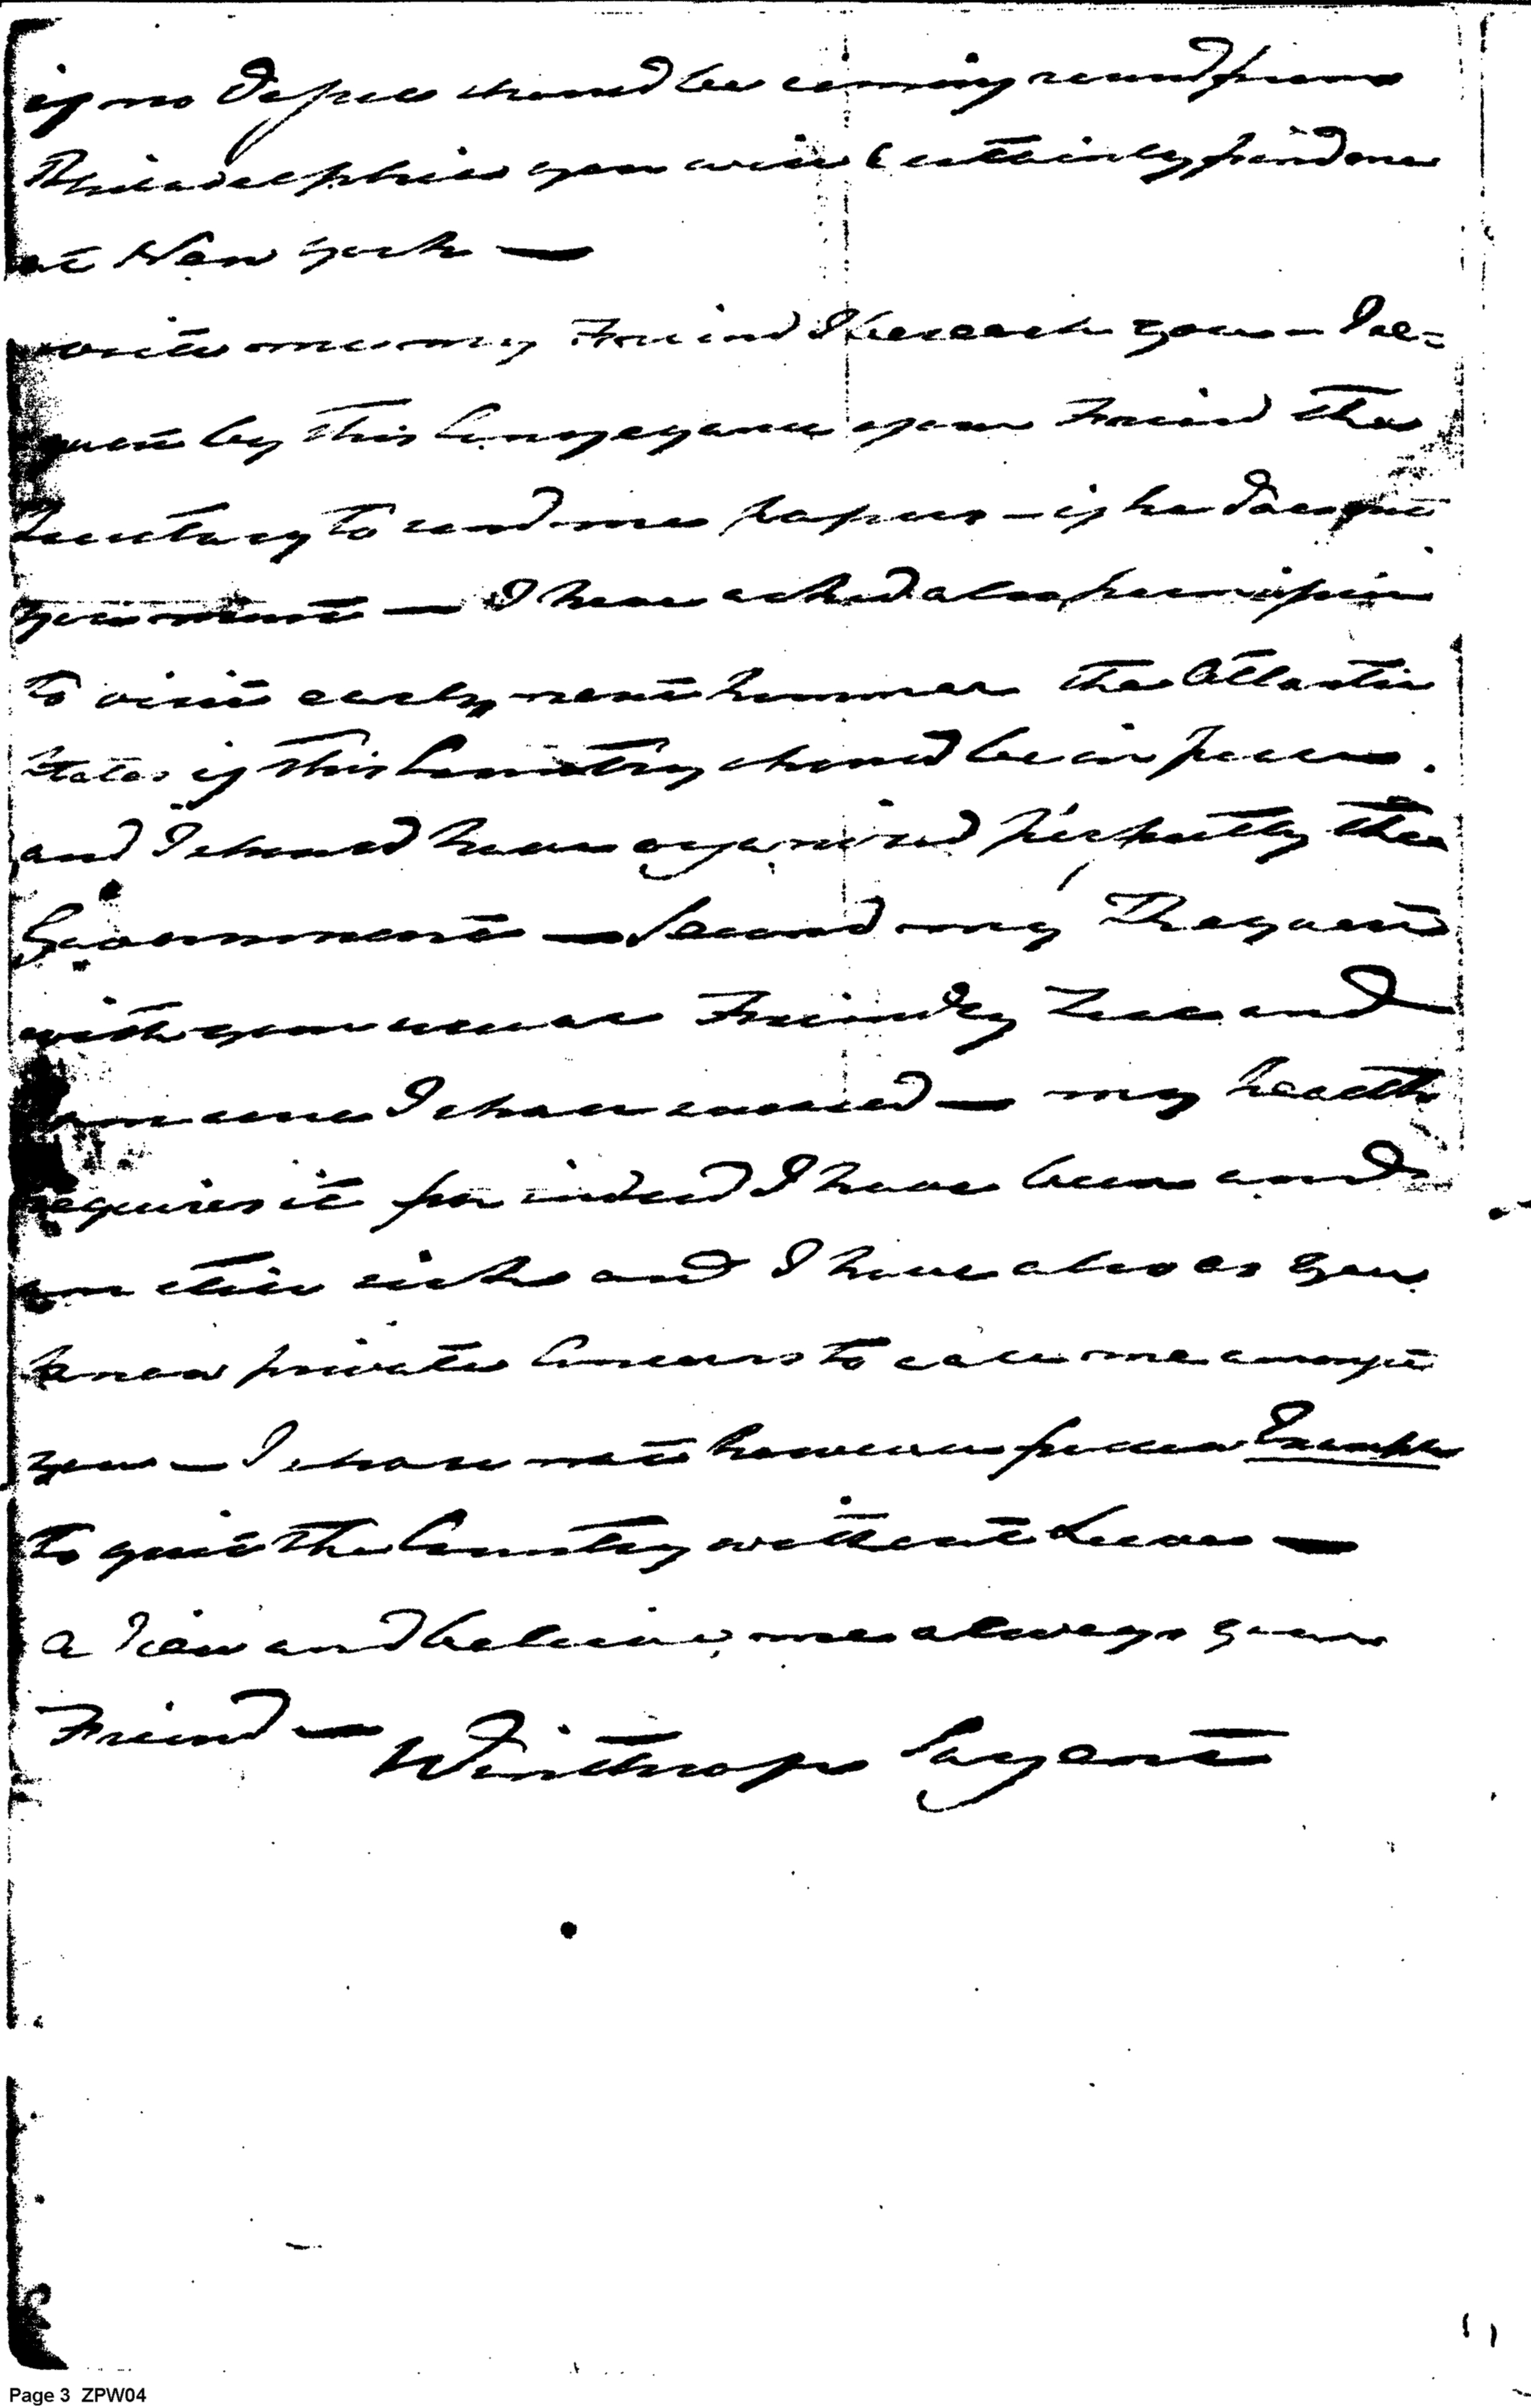 if no Vessel should be coming round from
Philadelphia you will certainly find one
at New York —
write me my Friend I beseech you — I re=
quest by this Conveyance your Friend the
Secretary to send me papers — if he does not
you must — I have asked also permission
to visit early next Summer the Atlantic
States if this Country should be in peace.
and I should have organized perfectly the
Government — Second my Request
with your usual Friendly Zeal and
I shall succeed — my health
requires it for indeed I have been and
am still sick and I have also as you
know private Concerns to call me amongst
you — I shall not however follow Example
to quit the Country without Leave —
a Dieu and believe me always your
Friend — Winthrop Sargent
Page 3 ZPW04